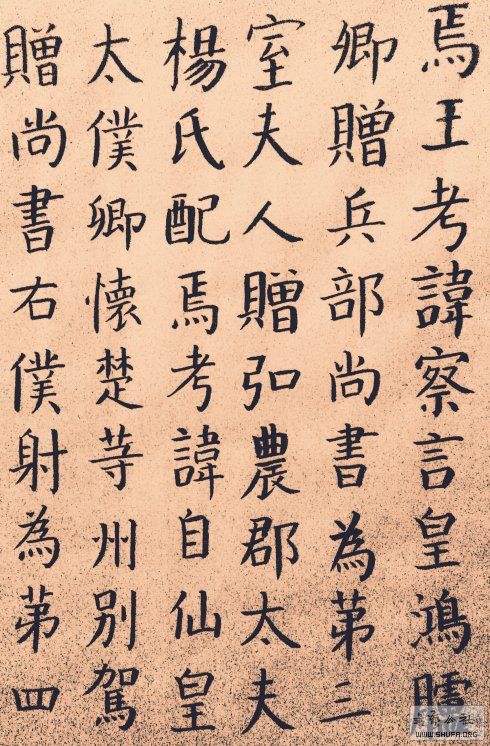 焉王考諱察言皇鴻臚
卿贈兵部尚書為苐三
室夫人贈弘農郡太夫
楊氏配焉考諱自仙皇
太僕卿懷楚䓁州别駕
贈尚書右僕射為苐四
WWW.SHUFA.ORG